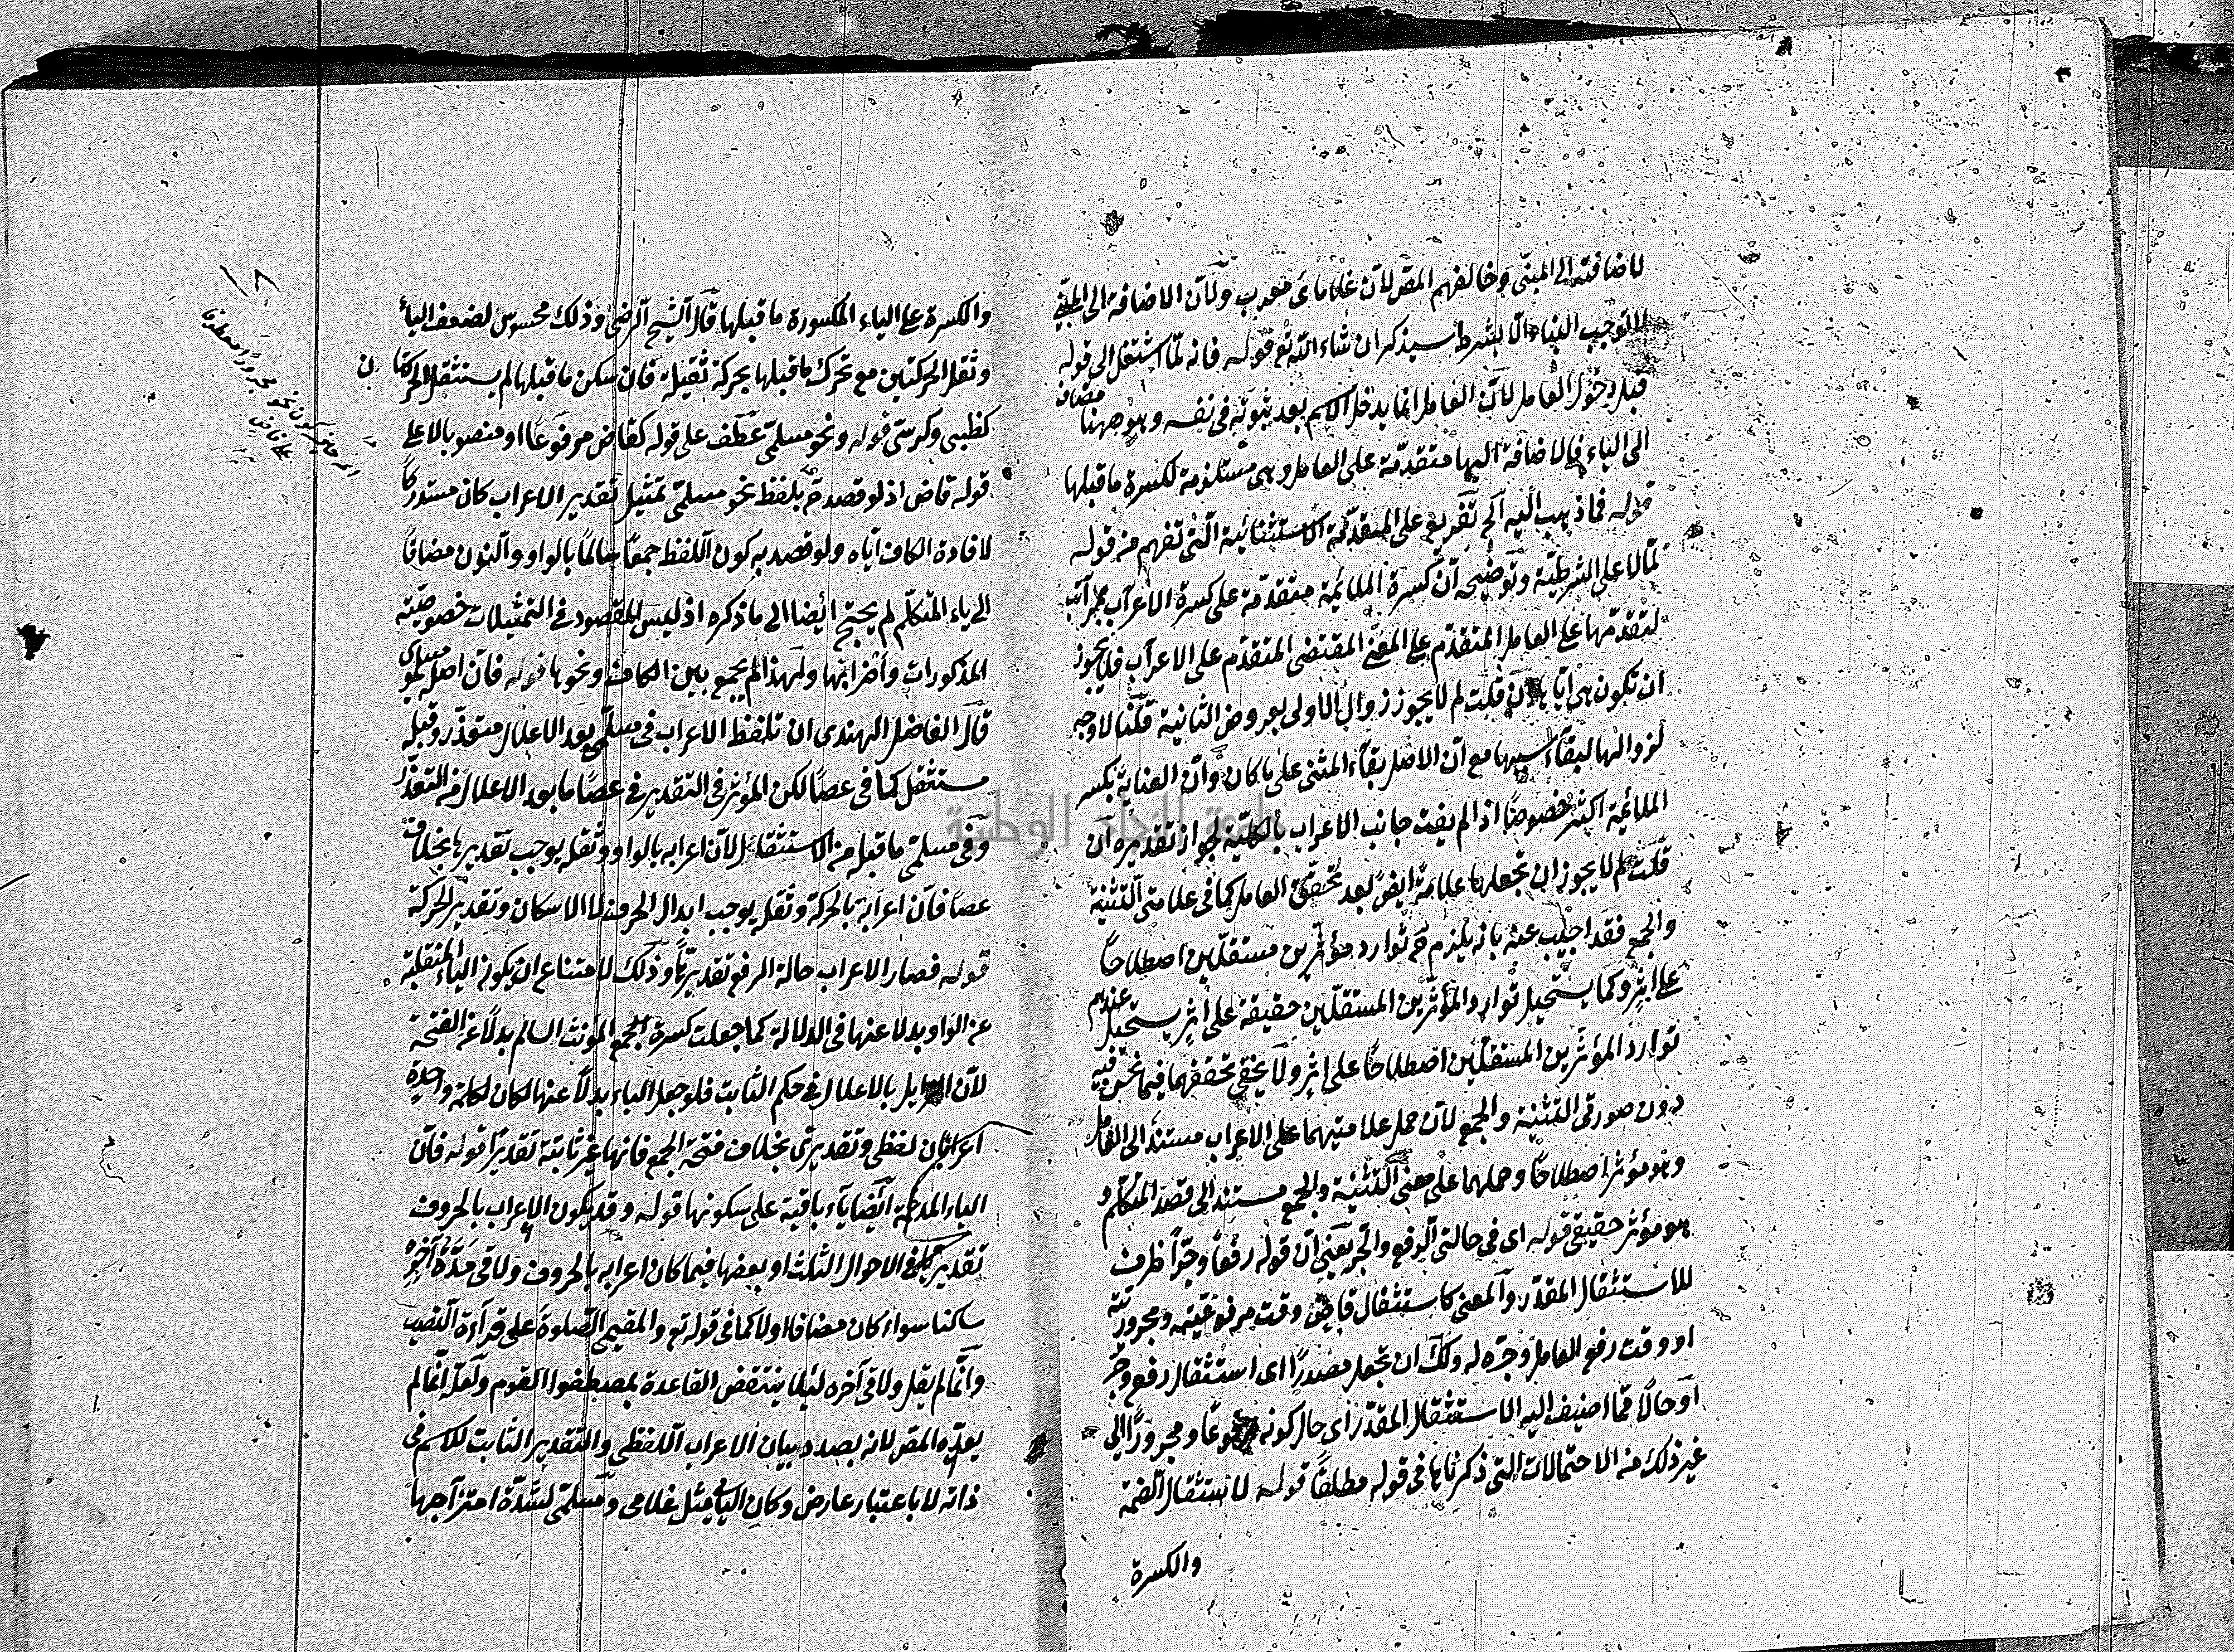 لاضافته الى المبنى وخالفهم المص لان غلامائ معرب ولان الاضافة الى المبنى
لا توجب البناء الا بشرط سيذكر ان شاء الله تع قوله فانه لما اشتغل الى قوله
قبل دخول العامل لان العامل انما يدخل الاسم بعد ثبوته فى نفسه وهو ههنا مضاف
الى الياء فالاضافة اليها متقدمة على العامل وهى مستلزمة لكسرة ما قبلها
قوله فما ذهب اليه الخ تفريع على المقدمة الاستثنائية التى تفهم من قوله
لما لا على الشرطية وتوضيحه ان كسرة الملائمة متقدمة على كسرة الاعراب بمراتب
لتقدمها على العامل المتقدم على المعنى المقتضى المتقدم على الاعراب فلا يجوز
ان تكون هى اياها فان قلت لم لا يجوز زوال الاولى بعروض الثانية قلنا لا وجه
لزوالها لبقاء سببها مع ان الاصل بقاء المثنى على ما كان وان العناية بكسر
الملائمة اكثر خصوصا اذا لم يفت جانب الاعراب بالكلية لجواز تقديره ان
قلت لم لا يجوز ان تجعلها علامة ايض بعد تحقق العامل كما فى علامتى التثنية
والجمع فقد اجيب عنه بانه يلزم ح توارد مؤثرين مستقلين اصطلاحا
على اثر وكما يستحيل توارد المؤثرين المستقلين حقيقة على اثر يستحيل عندهم
توارد المؤثرين المستقلين اصطلاحا على اثر ولا يخفى تحققهما فيما نحن فيه
دون صورتى التثنية والجمع لان حمل علامتيهما على الاعراب مستند الى العامل
وهو مؤثر اصطلاحا وحملهما على معنى التثنية والجمع مستند الى قصد المتكلم و
هو مؤثر حقيقى قوله اى فى حالتى الرفع والجر يعنى ان قوله رفعا وجرا ظرف
للاستثقال المقدر والمعنى كاستثقال قاض وقت مرفوعيته ومجروريته
او وقت رفع العامل وجره له ولك ان تجعل مصدرا اى استثقال رفع وجر
او حالا مما اضيف اليه الاستثقال المقدر اى حال كونه مرفوعا ومجرورا الى
غير ذلك من الاحتمالات التى ذكرناها فى قوله مطلقا قوله لاستثقال الضمة
والكسرة
والكسرة على الياء المكسورة ما قبلها قال الشيخ الرضى وذلك محسوس لضعف الياء
وثقل الحركتين مع تحرك ما قبلها بحركة ثقيلة فان سكن ما قبلها لم يستثقل الحركتان
كظبى وكرسى قوله ونحو مسلمى عطف على قوله كقاض مرفوعا او منصوبا لا على
قوله قاض اذ لو قصد ح بلفظ نحو مسلمى تمثيل تقدير الاعراب كان مستدركا
لافادة الكاف اياه ولو قصد به كون اللفظ جمعا سالما بالواو والنون مضافا
الى ياء المتكلم لم يحتج ايضا الى ما ذكره اذ ليس المقصود فى التمثيلات خصوصية
المذكورات واضرابها ولهذا لم يجمع بين الكاف ونحوها قوله فان اصله مسلموى
قال الفاضل الهندى ان تلفظ الاعراب فى مسلمى بعد الاعلال متعذر وقبله
مستثقل كما فى عصا لكن المؤثر فى التقدير فى عصا ما بعد الاعلال من التعذر
وفى مسلمى ما قبله من الاستثقال لان اعرابه بالواو وثقله يوجب تقديرها بخلاف
عصا فان اعرابه بالحركة وثقله يوجب ابدال الحرف لا الاسكان وتقدير الحركة
قوله فصار الاعراب حالة الرفع تقديريا وذلك لامتناع ان يكون الياء المنقلبة
عن الواو بدلا عنها فى الدلالة كما جعلت كسرة الجمع المؤنث السالم بدلا عن الفتحة
لان الزايل بالاعلال فى حكم الثابت فلو جعل الياء بدلا عنها لكان لكلمة واحدة
اعرابان لفظى وتقديرى بخلاف فتحة الجمع فانها غير ثابتة تقديرا قوله فان
الياء المدغمة ايضا ياء باقية على سكونها قوله وقد يكون الاعراب بالحروف
تقديريا فى الاحوال الثلث او بعضها فيما كان اعرابه بالحروف ولاقى مدة آخره
ساكنا سواء كان مضافا او لا كما فى قوله تع والمقيمى الصلوة على قراءة النصب
وانما لم يقل ولاقى آخره لئلا ينتقض القاعدة بمصطفو القوم ولعله انما لم
يعده المص لانه بصدد بيان الاعراب اللفظى والتقدير الثابت للاسم فى
ذاته لا باعتبار عارض وكان الياء فى مثل غلامى ومسلمى لشدة امتزاجها